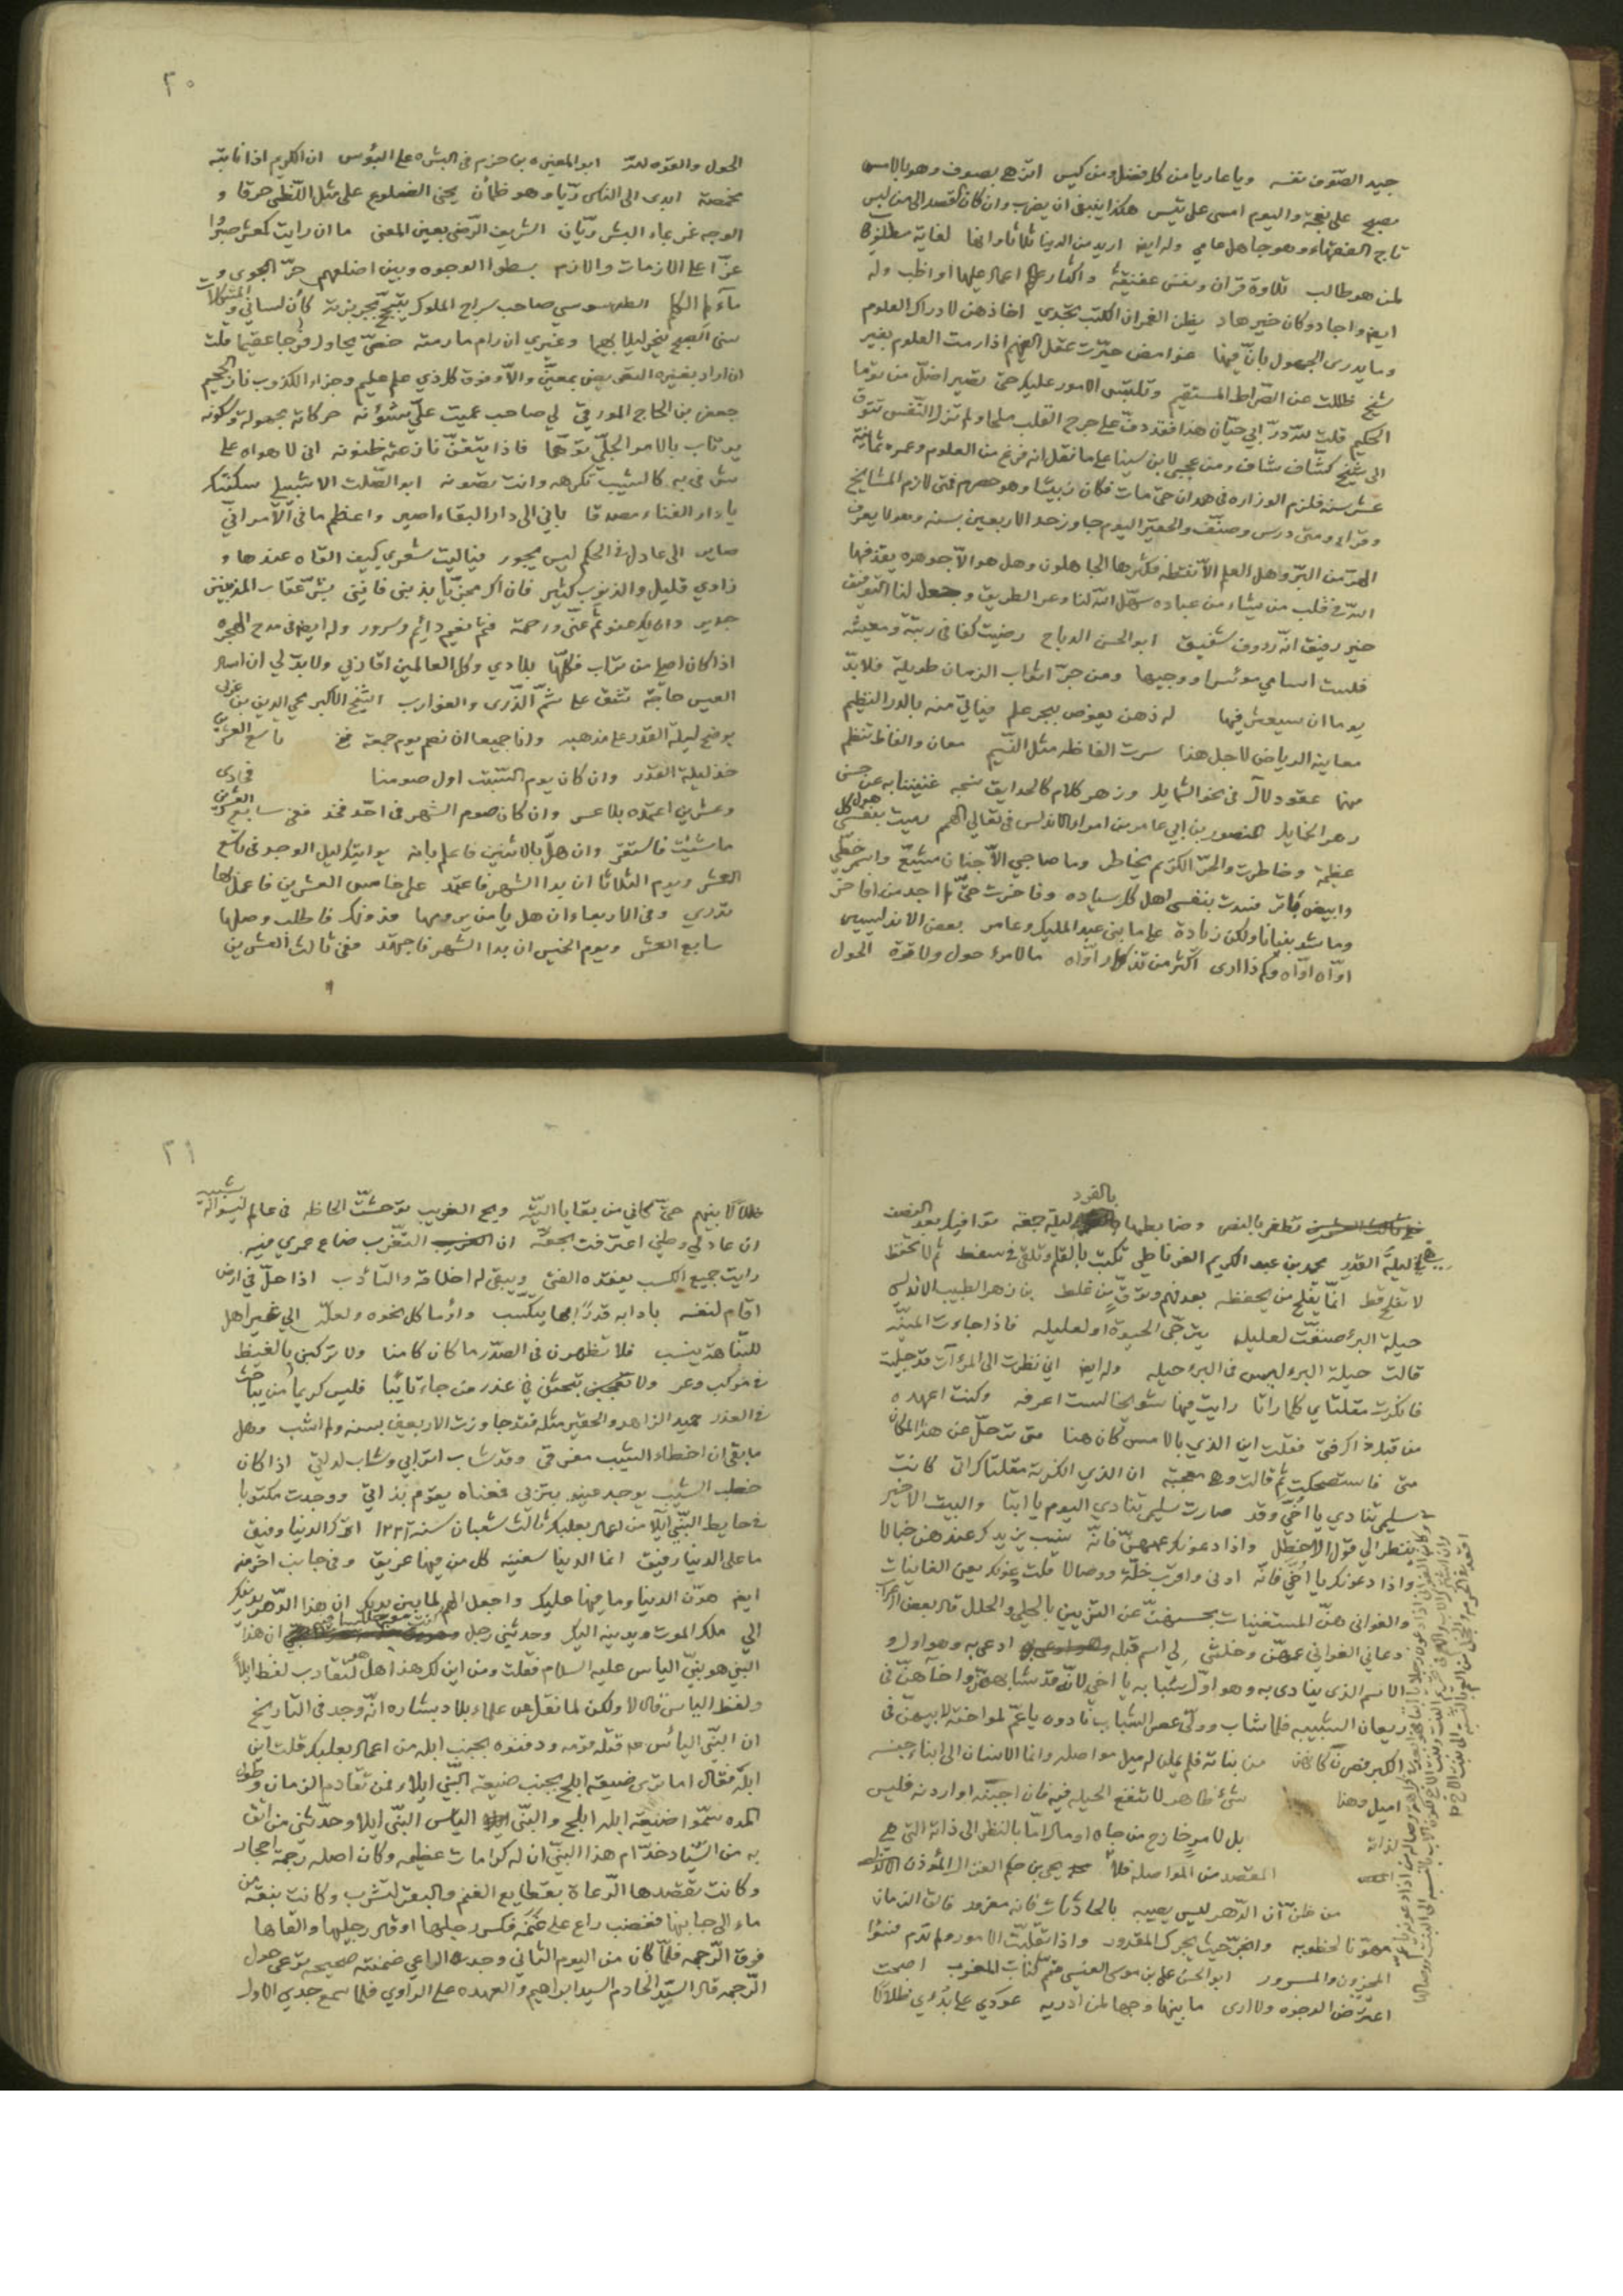 جيد الصوف نفسه وياعاريا من كل فضل ومن كيس اتزهى بصوف وهو بالامس
مصبح على نعجة واليوم امسى على تيس هكذا ينبغي ان يضرب وان كان قصد الى من لبس
تاج الفقهاء وهو جاهل عامي وله ايضا اريد من الدنيا ثلاثا وانها لغاية مطلوب
لمن هو طالب تلاوة قران ونفس عفيفة واكثار اعمال عليها اواظب وله
ايضا واجاد وكان خير هاد يظن الغمر ان الكتب تجدي اخا ذهن لادراك العلوم
وما يدري الجهول بان فيها غوامض حيرت عقل الفهيم اذا رمت العلوم بغير
شيخ ضللت عن الصراط المستقيم وتلتبس الامور عليك حتى تصير اضل من توما
الحكيم قلت لله در ابي حيان هذا فقد دف على جرح القلب ملحا ولم تزل النفس تتوق
الى شيخ كشاف شاف ومن عجبي لابن سينا على ما نقل انه فرغ من العلوم وعمره ثمانية
عشر سنة فلزم الوزاره في همدان حتى مات فكان زبيبا وهو حصرم فمتى لازم المشايخ
وقرا ومتى درس وصنف والحقير اليوم جاوز حد الاربعين بسنة وهو لا يعرف
الهر من البر وهل العلم الا نقطة فكثرها الجاهلون وهل هو الا جوهره يقذفها
الله في قلب من يشاء من عباده سهل الله لنا وعر الطريق وجعل لنا التوفيق
خير رفيق انه رؤوف شفيق ابو الحسن الدباج رضيت كفافي رتبة ومعيشة
فلست اسامي موسرا ووجيها ومن جر اثواب الزمان طويلة فلا بد
يوما ان سيعثر فيها له ذهن يغوص ببحر علم فياتي منه بالدر النظيم
معانيه الرياض لاجل هذا سرت الفاظه مثل النسيم معان والفاظ تنظم
منها عقود لآل في نحو الشمايل وزهر كلام كالحدايق نسجه غنينا به عن حسن
زهر الخمايل المنصور بن ابي عامر من امراء الاندلس في تعالي الهمم رميت بنفسي هول كل
عظيمة وخاطرت والحر الكريم يخاطر وما صاحبي الا جنان مشيع واسمر خطي
وابيض باتر فسدت بنفسي اهل كل سياده وفاخرت حتى لم اجد من افاخر
وما شدت بنيانا ولكن زيادة على ما بنى عبد المليك وعامر بعض الاندلسيين
اواه اواه وكم ذا ارى اكثر من تذكار اواه ما لامرء حول ولا قوة الحول
٢٠
الحول والقوه لله ابو المغيره بن حزم في البشر على البؤس ان الكريم اذا نابته
مخمصة ابدى الى الناس ريا وهو ظمآن يحني الضلوع على مثل اللظى حرقا و
الوجه غمر بماء البشر ريان الشريف الرضى بعين المعنى ما ان رايت كمعشر صبروا
عزا على الازمات والازم بسطوا الوجوه وبين اضلعهم حر الجوى و
مآلم الكلم الطرسوسي صاحب سراج الملوك يتبجح بجربزته كان لساني والمشكلات
سنى الصبح ينحر ليلا بهيما وغيري ان رام ما رمته خصي يحاول فرجا عقيما قلت
ان اراد بغيره البعض يعني بمعين والا وفوق كل ذي علم عليم وجزاء الكذوب نار الجحيم
جعفر بن الحاج المورقي لي صاحب عميت علي شئونه حركاته مجهولة وسكونه
يرتاب بالامر الجلي توهما فاذا تيقن نازعته ظنونه اني لاهواه على
شرقي به كالشيب تكرهه وانت تصونه ابو الصلت الاشبيلي سكنتك
يا دار الفناء مصدقا باني الى دار البقاء اصير واعظم ما في الامر اني
صاير الى عادل في الحكم ليس يجور فياليت شعري كيف القاه عندها و
زادي قليل والذنوب كثير فان اك مجزيا بذنبي فانني بشر عقاب المذنبين
جدير وان يك عفو ثم عني ورحمة فثم نعيم دائم وسرور وله ايضا في مدح الهجره
اذا كان اصلي من تراب فكلها بلادي وكل العالمين اقاربي ولا بد لي ان اسال
العيس حاجة تشق على شم الذرى والغوارب الشيخ الاكبر محي الدين بن عربي
يوضح ليلة القدر على مذهبه وانا جميعا ان نصم يوم جمعة ففي تاسع العشرين
خذ ليلة القدر وان كان يوم السبت اول صومنا فحادي
وعشرين اعتمده بلا عسر وان كان صوم الشهر في احد فخذ ففي سابع العشرين
ما شئت فاستقر وان هل بالاثنين فاعلم بانه يواتيك ليل الوجد في تاسع
العشر ويوم الثلاثا ان بدا الشهر فاعتمد على خامس العشرين فاعمل بها
تدري وفي الاربعاء ان هل يا من يرومها فدونك فاطلب وصلها
سابع العشر ويوم الخميس ان بدا الشهر فاجتهد ففي ثالث العشرين
تظفر بالنصر وضابطها بالفرد ليلة جمعة توافيك بعد النصف
ليلة القدر محمد بن عبد الكريم الغرناطي تكتب بالقلم وتلقي في سفط ثم لا تحفظ
لا تفلح قط انما يفلح من يحفظه بعد فهم وتوق من غلط بن زهر الطبيب الاندلسي
حيلة البرء صنفت لعليل يترجى الحيوة او لعليله فاذا جاءت المنية
قالت حيلة البرء ليس في البرء حيله وله ايضا اني نظرت الى المرآت قد جليت
فانكرت مقلتاي كلما راتا رايت فيها شيخا لست اعرفه وكنت اعهده
من قبل ذاك فتى فقلت اين الذي بالامس كان هنا متى ترحل عن هذا المكان
متى فاستضحكت ثم قالت وهي معجبة ان الذي انكرته مقلتاك اتى كانت
سليمى تنادي يا اخي وقد صارت سليمى تنادي اليوم يا ابتا والبيت الاخير
ينظر الى قول الاخطل واذا دعونك عمهن فانه نسب يزيدك عندهن خبالا
واذا دعونك يا اخي فانه ادنى واقرب خلة ووصالا قلت دعونك يعني الغانيات
والغواني هن المستغنيات بحسنهن عن التزيين بالحلي والحلل قال بعض
دعاني الغواني عمهن وخلتني لي اسم قبله ادعى به وهو اول و
الاسم الذي ينادى به وهو اول شبابه يا اخي لانه قد شابههن واخآهن في
ريعان الشبيبه فلما شاب وولى عصر الشباب نادونه يا عم لمواخته لابيهن في
الكبر فصرن كانهن من بناته فلم يملن له ميل مواصله وانما الانسان الى ابناء جنسه
اميل وهذا شئ ظاهر لا تنفع الحيله فيه فان اجبته او اردنه فليس
لذاته بل لامر خارج من جاه او مال اما بالنظر الى ذاته التي هي
المقصد من المواصله فلا يحيى بن حكم الغزال
من ظن ان الدهر ليس يصيبه بالحادثات فانه مغرور فالق الزمان
مهونا لخطوبه وانجر حيث يجرك المقدور واذا تقلبت الامور ولم تدم فسواء
المحزون والمسرور ابو الحسن علي بن موسى العنسي متمم كتاب المغرب اصبحت
اعترض الوجوه ولا ارى ما بينها وجها لمن ادريه عودي على بدئي ضلالا
٢١
ضلالا بينهم حتى كاني من بقايا التيه ويح الغريب توحشت الحاظه في عالم ليسوا له بشبيه
ان عاد لي وطني اعترفت بحقه ان التغرب ضاع عمري فيه
رايت جميع الكسب يفقده الفتى ويبقى له اخلاقه والتادب اذا حل في ارض
اقام لنفسه بادابه قدرا بها يتكسب واوما كل نحوه ولعله الى غير اهل
للنباهة ينسب فلا تظهرن في الصدر ما كان كامنا ولا تركبن بالغيظ
في مركب وعر ولا تبحثن في عذر من جاء تائبا فليس كريما من يباحث
في العذر حميد الزاهد والحقير مثله فقد جاوزت الاربعين بسنه ولم اشب وهل
ما بقى ان اخطاء الشيب مفرقي وقد شاب اترابي وشاب لداتي اذا كان
خطب الشيب يوجد عينه بتربي فمعناه يقوم بذاتي ووجدت مكتوبا
في حايط النبي ايلا من اعمال بعلبك ثالث شعبان سنة ١٢٢١ اترك الدنيا وفيق
ما على الدنيا رفيق انما الدنيا سفينه كل من فيها غريق وفي جانب اخر منه
ايضا هون الدنيا وما فيها عليك واجعل الهم لما بين يديك ان هذا الدهر يدنيك
الى ملك الموت ويدنيه اليك وحدثني رجل ان هذا
النبي هو نبي الياس عليه السلام فقلت ومن اين لك هذا هل لتقارب لفظ ايلا
ولفظ الياس قال لا ولكن لما نقل عن علماء بلاد بشاره انه وجد في التاريخ
ان النبي اليأس قتله قومه ودفنوه بجنب ابله من اعمال بعلبك قلت اين
ابله فقال اما ترى ضيعة ابلح بجنب ضيعة النبي ايلاء فمن تقادم الزمان وطول
المده سموا ضيعة ابله ابلح والنبي الياس النبي ايلا وحدثني من اثق
به من السياد خدام هذا النبي ان له كرامات عظيمه وكان اصله رجمة احجار
وكانت تقصدها الرعاة بقطايع الغنم والبقر لتشرب وكانت بقعة من
ماء الى جانبها فغضب راع على غنمه فكسر رجليها اوقال رجليها والقاها
فوق الرجمه فلما كان من اليوم الثاني وجدت الراعي غنمته صحيحه ترعى حول
الرجمه قال السيد الخادم السيد ابراهيم والعهده على الراوي فلما سمع جدي الاول